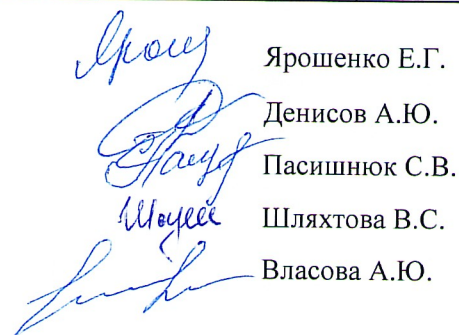 Ярошенко Е.Г.
Денисов А.Ю.
Пасишнюк С.В.
Шляхтова В.С.
Власова А.Ю.